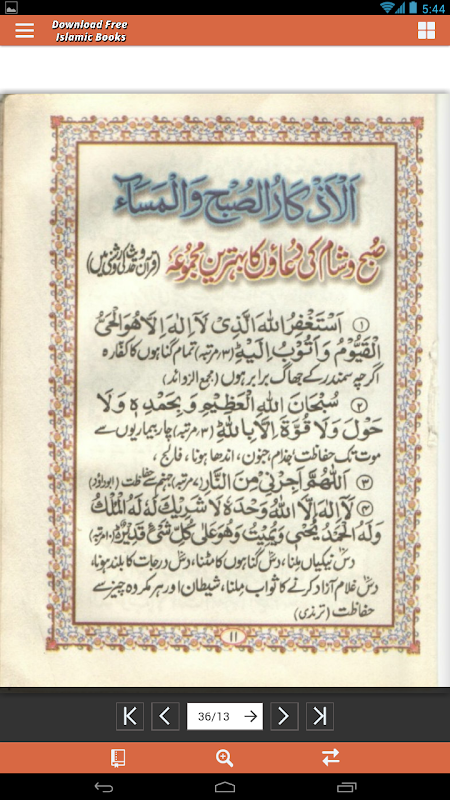 5:44
Download Free
Islamic Books
اَلْاَذْكَارُ الصُّبْحِ وَالْمَسَاءِ
صبح و شام کی دُعاؤں کا بہترین مجموعہ (قرآن و حدیث کی روشنی میں)
① اَسْتَغْفِرُ اللهَ الَّذِىْ لَآ اِلٰهَ اِلَّا هُوَ الْحَىُّ
الْقَيُّوْمُ وَاَتُوْبُ اِلَيْهِ (۳ مرتبہ) تمام گناہوں کا کفارہ
اگرچہ سمندر کے جھاگ برابر ہوں (مجمع الزوائد)
② سُبْحَانَ اللهِ الْعَظِيْمِ وَبِحَمْدِهٖ وَلَا
حَوْلَ وَلَا قُوَّةَ اِلَّا بِاللهِ (۳ مرتبہ) چار بیماریوں سے
موت تک حفاظت جذام، جنون، اندھا ہونا، فالج،
③ اَللّٰهُمَّ اَجِرْنِىْ مِنَ النَّارِ (۷ مرتبہ) جہنم سے حفاظت (ابوداؤد)
④ لَآ اِلٰهَ اِلَّا اللهُ وَحْدَهٗ لَا شَرِيْكَ لَهٗ لَهُ الْمُلْكُ
وَلَهُ الْحَمْدُ يُحْيِىْ وَيُمِيْتُ وَهُوَ عَلٰى كُلِّ شَىْءٍ قَدِيْرٌ (۱۰ مرتبہ)
دس نیکیاں ملنا، دس گناہوں کا مٹنا، دس درجات کا بلند ہونا،
دس غلام آزاد کرنے کا ثواب ملنا، شیطان اور ہر مکروہ چیز سے
حفاظت (ترمذی)
۱۱
36/13